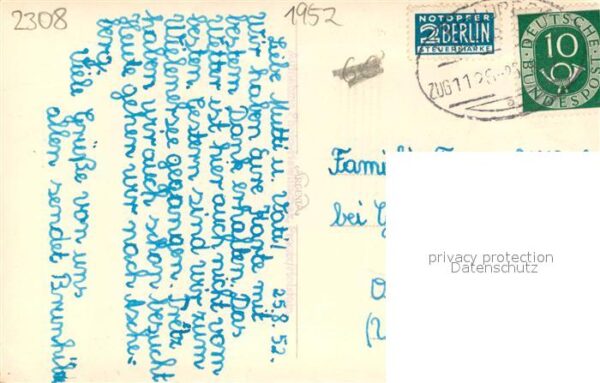 2308
1952
NOTOPFER
2 BERLIN
STEUERMARKE
DEUTSCHE BUNDESPOST
10
ZUG 112
25.8.52.
Liebe Mutti u. Vati!
Wir haben Eure Karte mit
bestem Dank erhalten. Das
Wetter ist hier auch nicht vom
besten. Gestern sind wir zum
gegangen. Fritz
haben wir auch schon besucht
Heute gehen wir nach Asche-
berg.
Viele Grüße von uns
allen sendet Brunhild
Famili
bei
privacy protection
Datenschutz